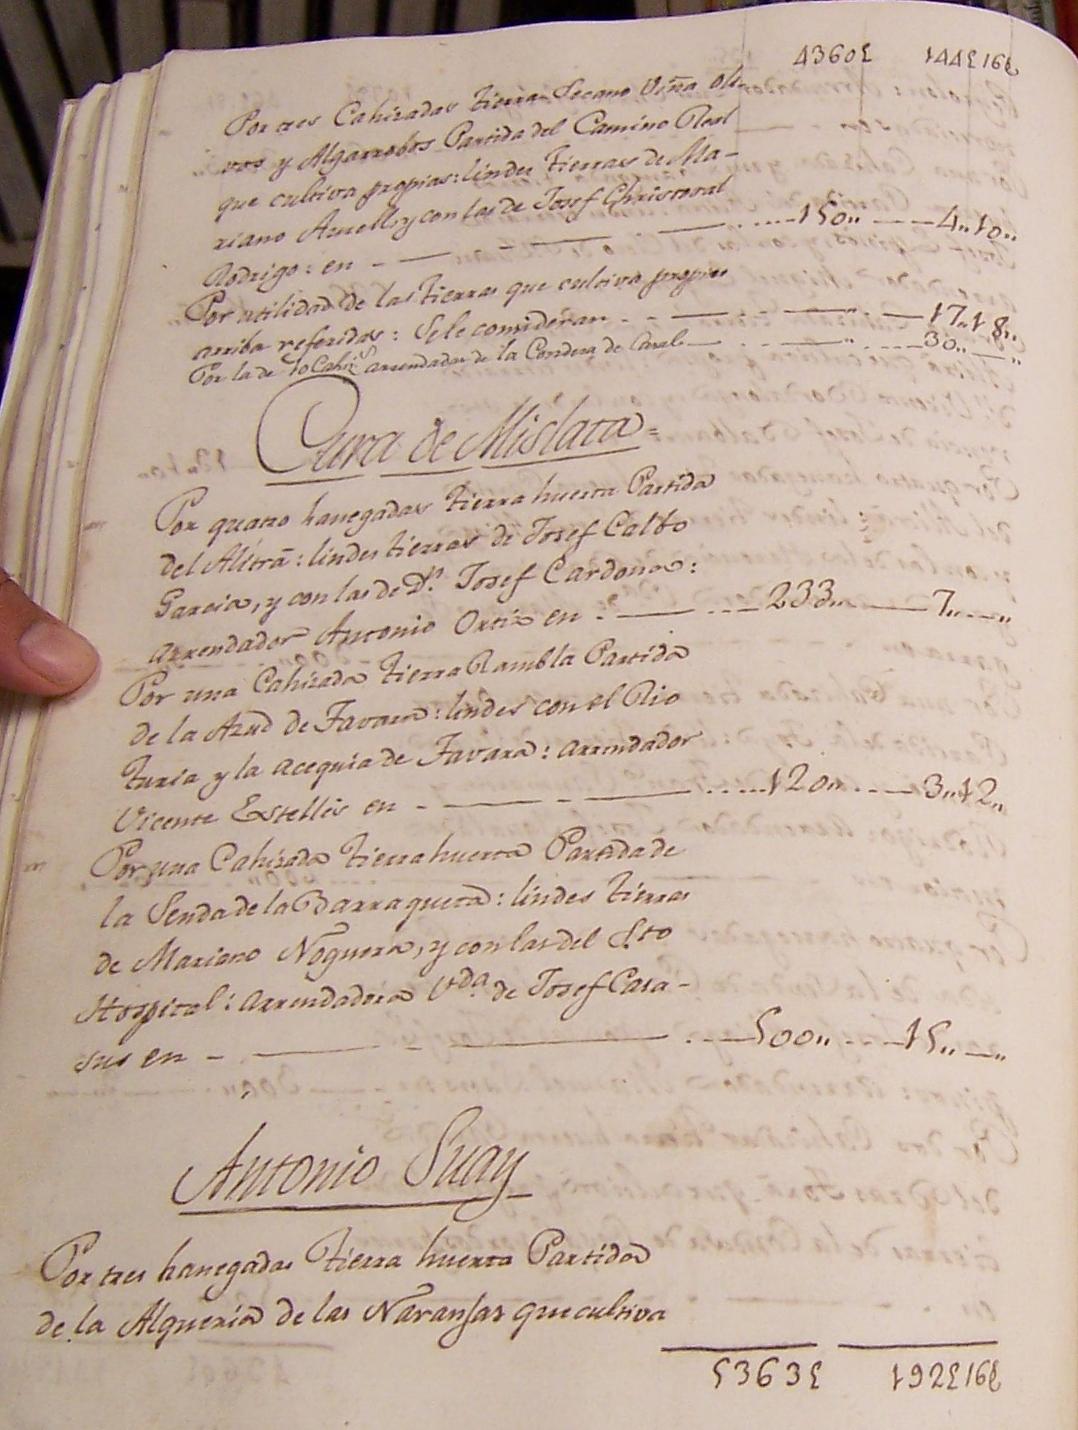 4360£ 144£16£
Por tres Cahizadas tierra Secano Viña oli-
vos y Algarrobos Partida del Camino Real
que cultiva propias: lindes tierras de Ma-
riano y con las de Josef Christoval
Rodrigo: en - - - - 150,, - - 4,,10,,
Por utilidad de las tierras que cultiva propias
arriba referidas: Sele consideran - - - - 17,,18,,
Por la de 10 Cahiz.s arrendadas de la Condesa de - - - - 30,, - ,,
Cura de Mislata =
Por quatro hanegadas tierra huerta Partida
del : lindes tierras de Josef Calbo
Garcia, y con las de Dn. Josef Cardona:
arrendador Antonio Ortiz en - - - 233,, - 7,, - ,,
Por una Cahizada tierra Rambla Partida
de la Azud de Favara: lindes con el Rio
Turia y la acequia de Favara: arrendador
Vicente Estelles en - - - - 120,, - - 3,,12,,
Por una Cahizada tierra huerta Partida de
la Senda de la Barraqueta: lindes tierras
de Mariano Noguera, y con las del Sto
Hospital: arrendadora Vda. de Josef Casa-
sus en - - - - 500,, - - 15,, - ,,
Antonio Suay
Por tres hanegadas tierra huerta Partida
de la Alqueria de las Naranjas que cultiva
5363£ 192£16£